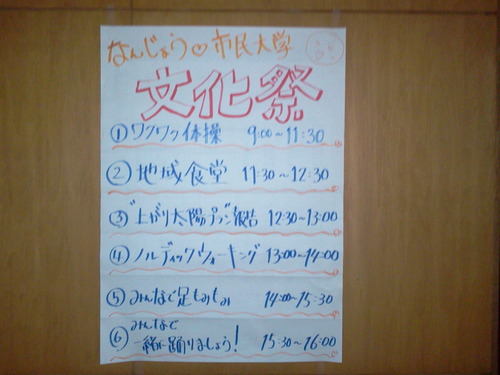 なんじょう♡市民大学
文化祭
①ワクワク体操 9:00~11:30
②地域食堂 11:30~12:30
③"上がり太陽プラン"報告 12:30~13:00
④ノルディックウォーキング 13:00~14:00
⑤みんなで足もみもみ 14:00~15:30
⑥みんなで
一緒に踊りましょう! 15:30~16:00